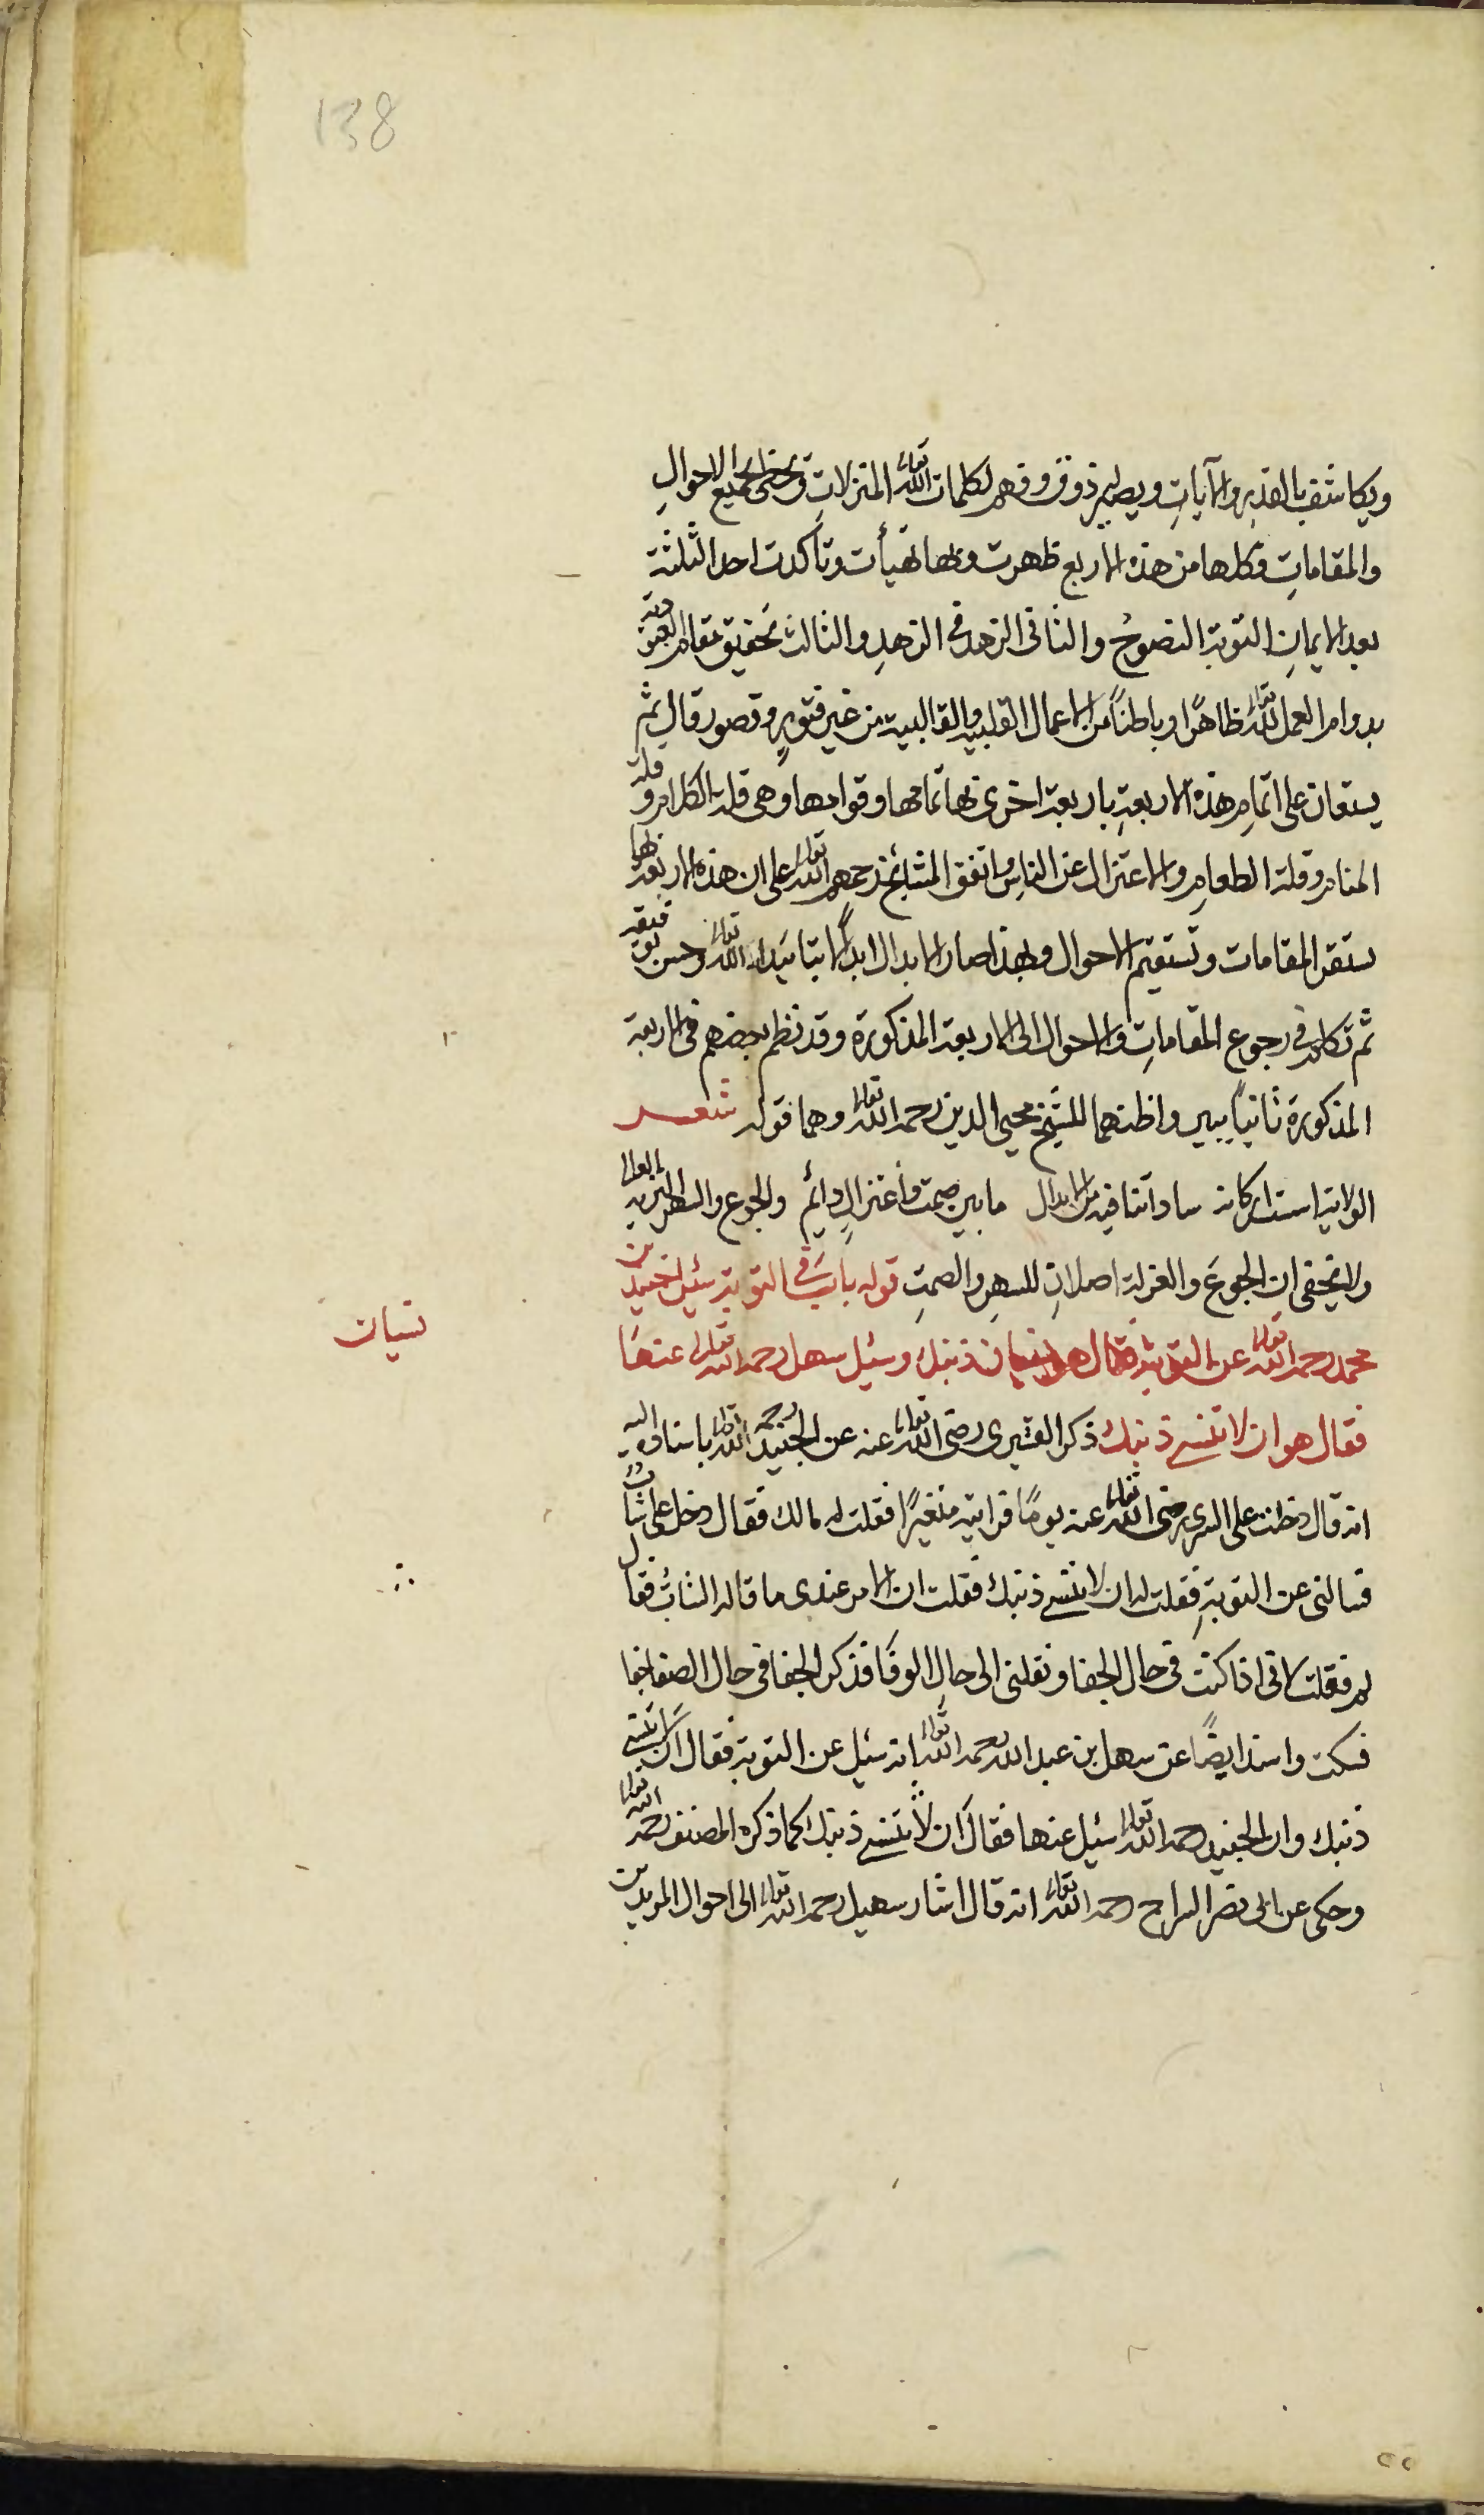 138
ويكاشف بالقدر والآيات ويصير ذوق وفهم لكلمات الله تعالى المنزلات ويحظى بجميع الاحوال
والمقامات وكلها من هذه الاربع ظهرت وبها تهيأت وتأكدت احد الثلثة
بعد الايمان التوبة النصوح والثانى الزهد فى الزهد والثالث تحقيق مقام العبودية
بدوام العمل لله تعالى ظاهرًا وباطنًا من الاعمال القلبية والقالبية من غير فتور وقصور قال ثم
يستعان على اتمام هذه الاربعة باربعة اخرى بها تمامها وقوامها وهى قلة الكلام وقلة
المنام وقلة الطعام والاعتزال عن الناس واتفق المشائخ رحمهم الله تعالى على ان هذه الاربعة بها
تستقر المقامات وتستقيم الاحوال وبهذا صار الابدال ابدالًا بتاييد الله تعالى وحسن توفيقه
ثم تكلم فى رجوع المقامات والاحوال الى الاربعة المذكورة وقد نظم بعضهم فى الاربعة
المذكورة ثانيًا ببيت واظنهما للشيخ محيى الدين رحمه الله تعالى وهما قوله شعر
الولاية اسندت اركانه ساداتنا فيه من الابدال ما بين صمت واعتزال دائم والجوع والسهر النزيه العالى
ولا يخفى ان الجوع والعزلة اصلان للسهر والصمت قوله باب فى التوبة سئل جنيد بن
محمد رحمه الله تعالى عن التوبة فقال هو نسيان ذنبك وسئل سهل رحمه الله تعالى عنها
نسيان
فقال هو ان لا تنسى ذنبك ذكر القشيرى رضى الله تعالى عنه عن الجنيد رحمه الله تعالى باسناده اليه
انه قال دخلت على السرى رضى الله تعالى عنه يومًا فرايته متغيرًا فقلت له مالك فقال دخل على شاب
فسالنى عن التوبة فقلت له ان لا تنسى ذنبك فقلت ان الامر عندى ما قاله الشاب فقال
لم فقلت لانى اذا كنت فى حال الجفا ونقلنى الى حال الوفا فذكر الجفا فى حال الصفا جفا
فسكت واسند ايضًا عن سهل بن عبد الله رحمه الله تعالى انه سئل عن التوبة فقال ان لا تنسى
ذنبك وان الجنيد رحمه الله تعالى سئل عنها فقال ان لا تنسى ذنبك كما ذكره المصنف رحمه الله تعالى
وحكى عن ابى نصر السراج رحمه الله تعالى انه قال اشار سهيل رحمه الله تعالى الى احوال المريدين